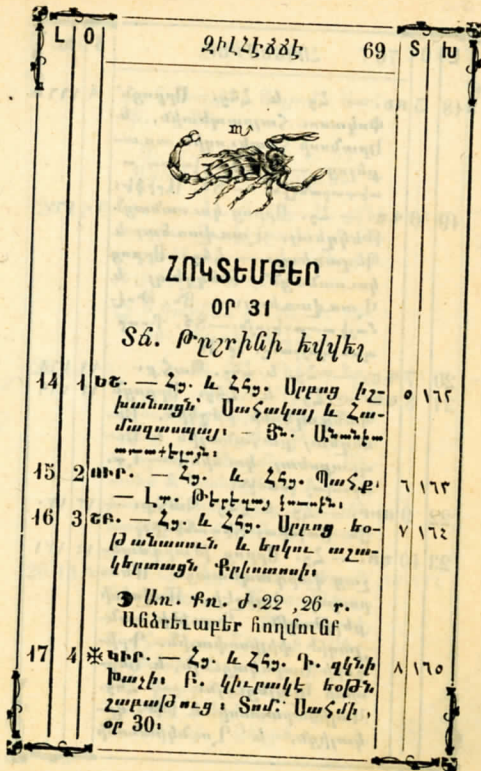 Լ Օ ԶԻԼՀԷՃՃԷ 69 Տ Խ
♏
ՀՈԿՏԵՄԲԵՐ
ՕՐ 31
Տճ. Թըշրինի էվվէլ
14 1 ԵՇ. — Հյ. և ՀՀյ. Սրբոց իշ- ٥ ١٦٢
խանացն՝ Սահակայ և Հա-
մազասպայ։ — Յն. Անանէա
առաքելոյն։
15 2 ՈՒՐ. — Հյ. և ՀՀյ. Պահք։ ٦ ١٦٣
— Լտ.
16 3 ՇԲ. — Հյ. և ՀՀյ. Սրբոց եօ- ٧ ١٦٤
թանասուն և երկու աշա-
կերտացն Քրիստոսի։
Առ. Քռ. Ժ. 22, 26 ր.
Անձրեւաբեր հողմունք
17 4 ԿԻՐ. — Հյ. և ՀՀյ. Դ. զկնի ٨ ١٦٥
Խաչի։ Բ. կիւրակէ եօթն
շաբաթուց։ Տոմ. Սահմի,
օր 30։